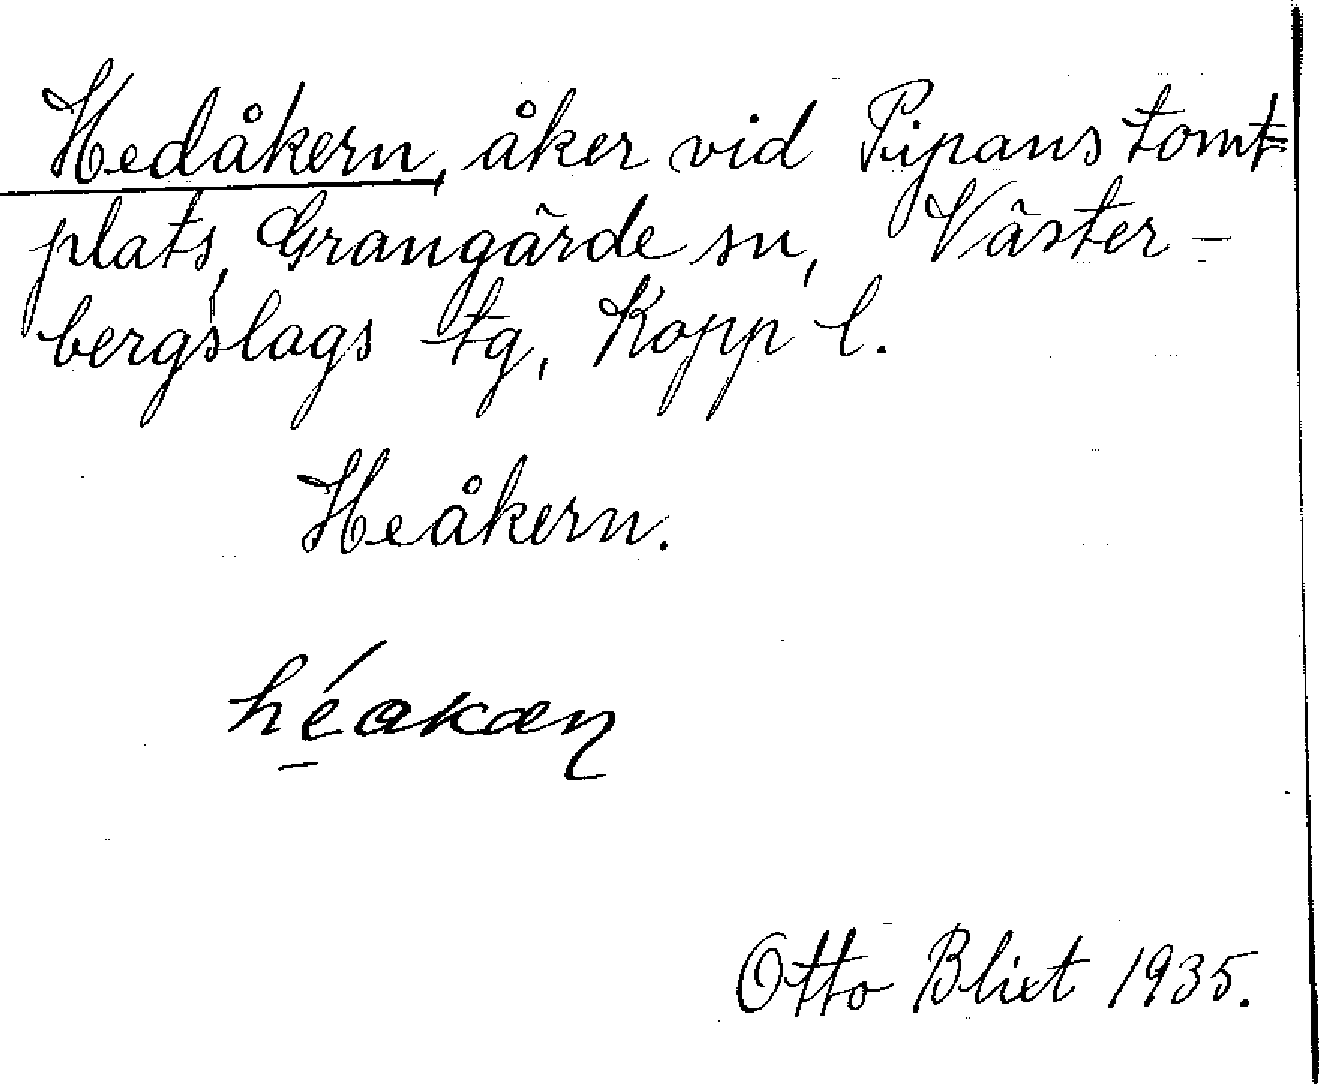 Hedåkern, åker vid Pipans tomt=
plats, Grangärde sn, Väster-
bergslags tg, Kopp l.
Heåkern.
héakæn
Otto Blixt 1935.